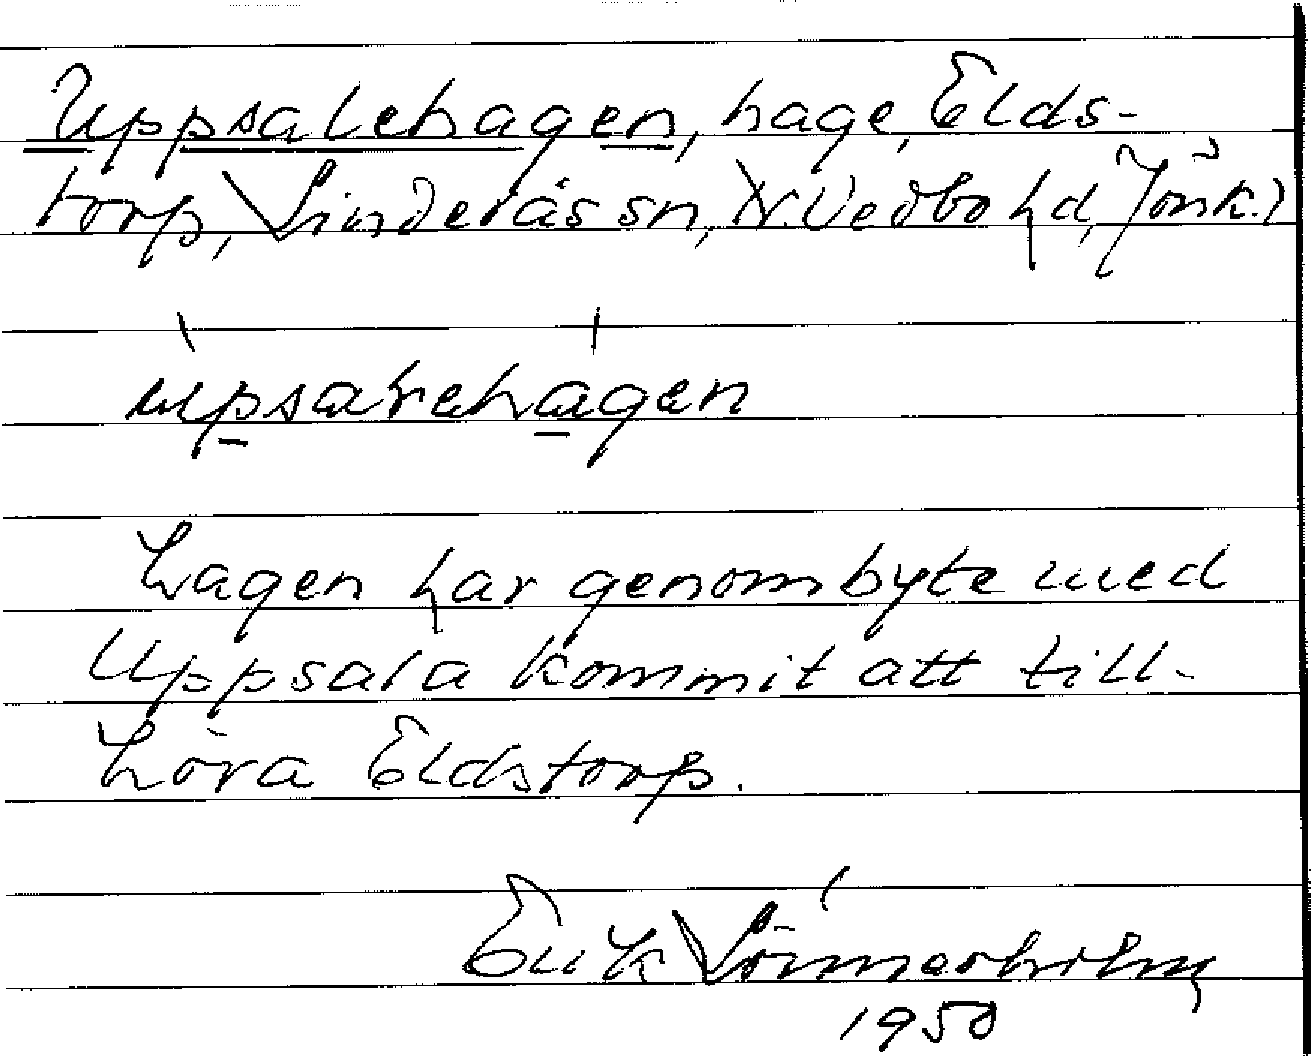 Uppsalehagen, hage, Elds-
torp, Linderås sn, N. Vedbo hd, Jönk.l
upsalehagen
Hagen har genom byte med
Uppsala kommit att till-
höra Eldstorp.
Erik Lönnerholm
1950